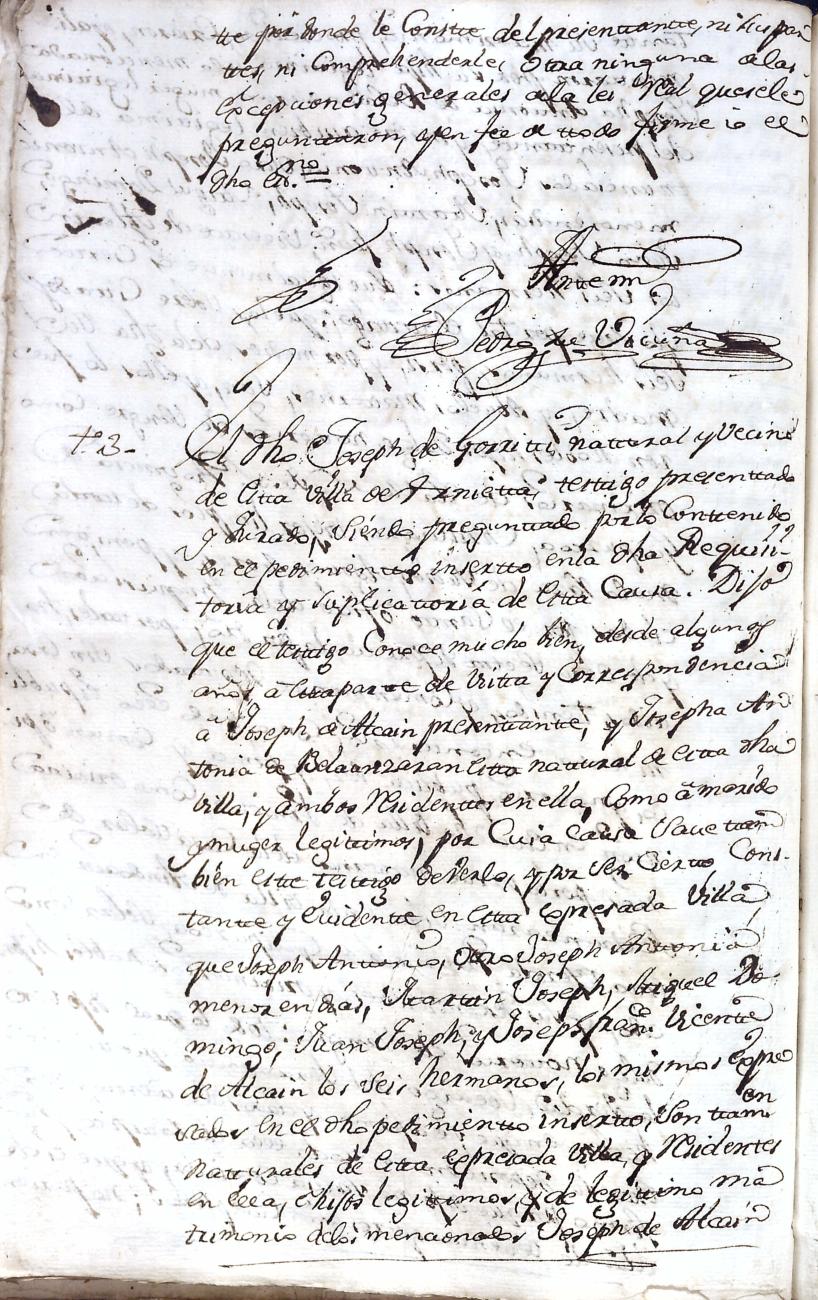 te por donde le Conste del presentante, ni sus par
tes, ni Comprehenderle, Otra ninguna a las
excepciones generales de la lei Real que se le
preguntaron, y en fee de ttodo firme io el
dho Ess.no =
Ante mi
Pedro de Vicuña
t.o 3.
El dho Joseph de Gorritti natural y vecino
de Esta Villa de Arnietta, testigo presenttado
y Jurado, siendo preguntado por lo Contenido
en el pedimiento insertto en la dha Requisi-
toria y Suplicatoria de Esta Causa. Dijo
que el testigo Conoce mucho bien, desde algunos
años a Esta parte de Vista y Correspondencia
a Joseph de Alcain presentante, y Josepha An
tonia de Belaunzaran Esta natural de Esta dha
Villa, y ambos Residentes en ella, Como a marido
y muger legitimos, por Cuia Causa Save tam
bien este testigo de verlo, y por ser Cierto, Cons-
tante y Evidente en Esta expresada Villa
que Joseph Antonio, Otro Joseph Antonio
menor en dias, Martin Joseph, Miguel Do
mingo, Juan Joseph, y Joseph Fran.co Vicente
de Alcain los seis hermanos, los mismos expre
sados en el dho pedimiento insertto, son tam
en
Natturales de Esta expresada Villa, y Residentes
en ella, e hijos legitimos, y de legitimo ma
trimonio de los mencionados Joseph de Alcain